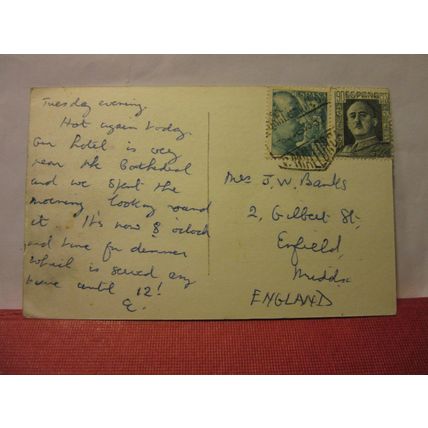 Tuesday evening.
Hot again today.
Our hotel is very
near the Cathedral
and we spent the
morning looking round
it. It's now 8 o'clock
and time for dinner
which is served any
time until 12!
Mrs J. W. Banks
2, Gilbert St,
Enfield,
Middx
ENGLAND
ESPAÑA